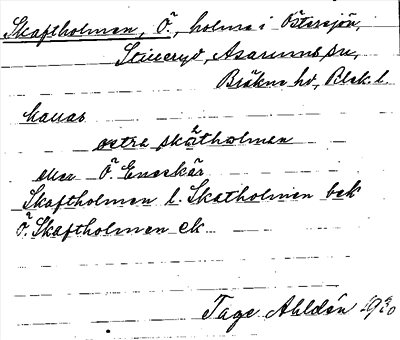 Skaftholmen, Ö., holme i Östersjön,
Stilleryd, Asarums sn,
Bräkne hd, Blek. l.
kallas
östra skatholmen
eller Ö. Eneskär
Skaftholmen l. Skatholmen bek
Ö. Skaftholmen ek
Tage Ahldén 19